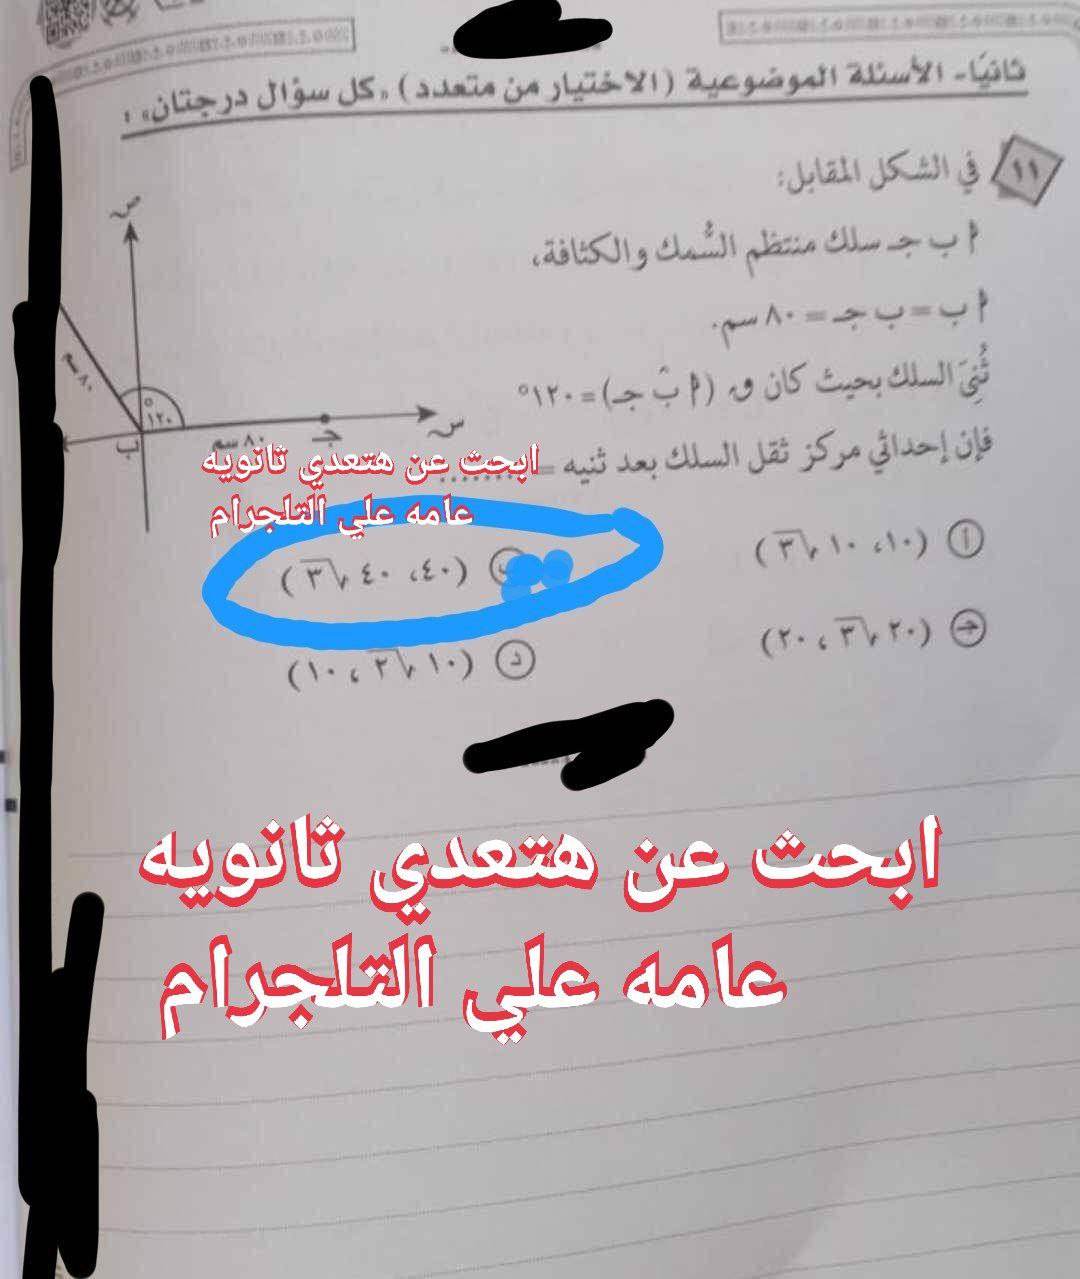 ثانيًا- الأسئلة الموضوعية (الاختيار من متعدد) «كل سؤال درجتان» :
١١ في الشكل المقابل:
أ ب جـ سلك منتظم السُّمك والكثافة،
أ ب = ب جـ = ٨٠ سم.
ثُنِيَ السلك بحيث كان ق (أ بَ جـ) = ١٢٠°
فإن إحداثي مركز ثقل السلك بعد ثنيه = ........
ص
٨٠ سم
١٢٠°
ب
٨٠ سم
جـ
س
ابحث عن هتعدي ثانويه
عامه علي التلجرام
أ (١٠، ١٠√٣)
ب (٤٠، ٤٠√٣)
جـ (٢٠√٣، ٢٠)
د (١٠√٢، ١٠)
ابحث عن هتعدي ثانويه
عامه علي التلجرام